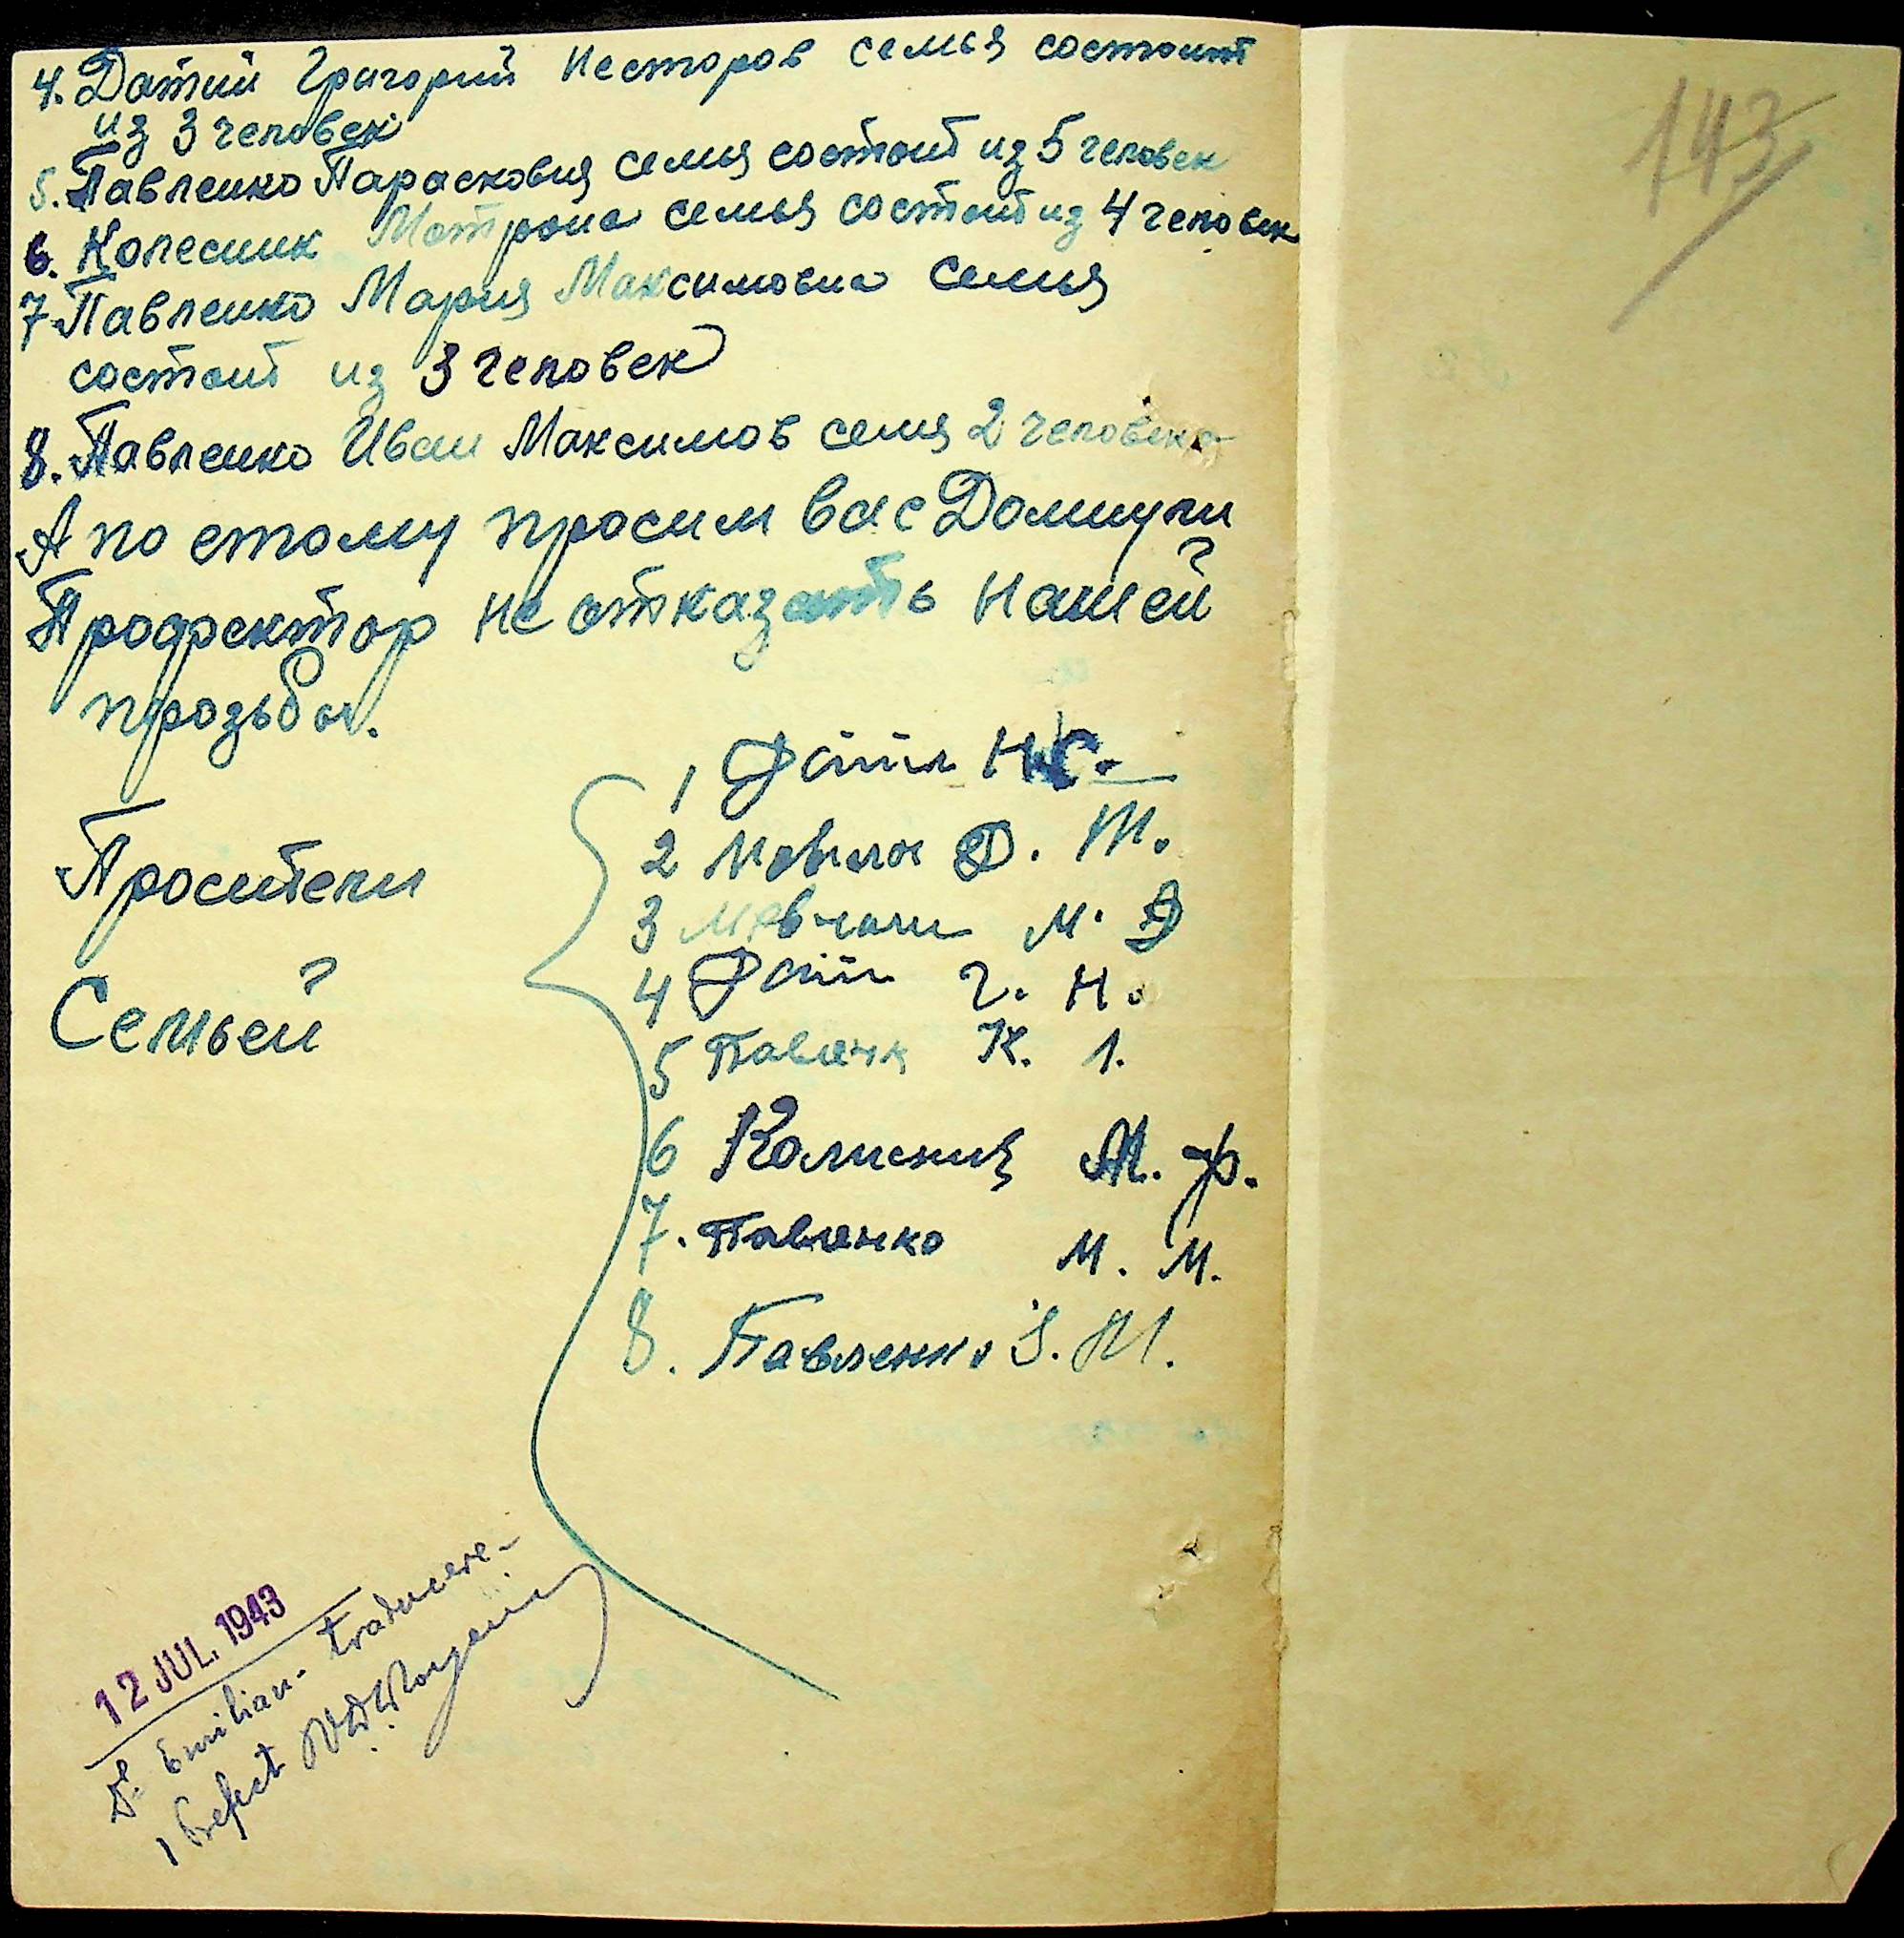 4. Датий Григорий Несторов семья состоит
из 3 человек
5. Павленко Парасковия семя состоит из 5 человек
6. Колесник Мотрона семья состоит из 4 человек
7. Павленко Мария Максимовна семья
состоит из 3 человек
8. Павленко Иван Максимов семя 2 человека
А по етому просим вас Домнули
Профектор не отказать нашей
прозьбы.
Просители
Семьей
1 Датiй Н.С.
2 Д. Т.
3 М. Д
4 Датiй Г. Н.
5 Павленк К. 1.
6 Колисник М. Ф.
7. Павленко М. М.
8. Павленко І. М.
12 JUL. 1943
Dl. Emilian - traducere -
Prefect
143